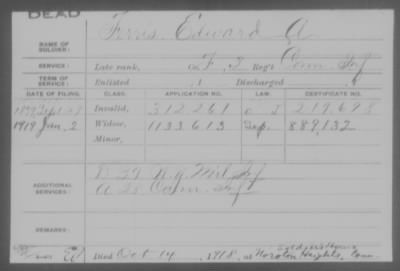 DEAD
NAME OF SOLDIER: Ferris, Edward A
SERVICE: Late rank, Co. F, 2 Reg't Conn. Inf
TERM OF SERVICE: Enlisted , 1 Discharged , 1
DATE OF FILING. CLASS. APPLICATION NO. LAW. CERTIFICATE NO.
Invalid, 312261 219698
1919 Jan. 2 Widow, 1133613 889,132
Minor,
ADDITIONAL SERVICES: D 39 N.Y. Mil. Inf
A 28 Conn. Inf
REMARKS:
Soldiers Home
Died Oct 14, 1918, at Noroton Heights, Conn.